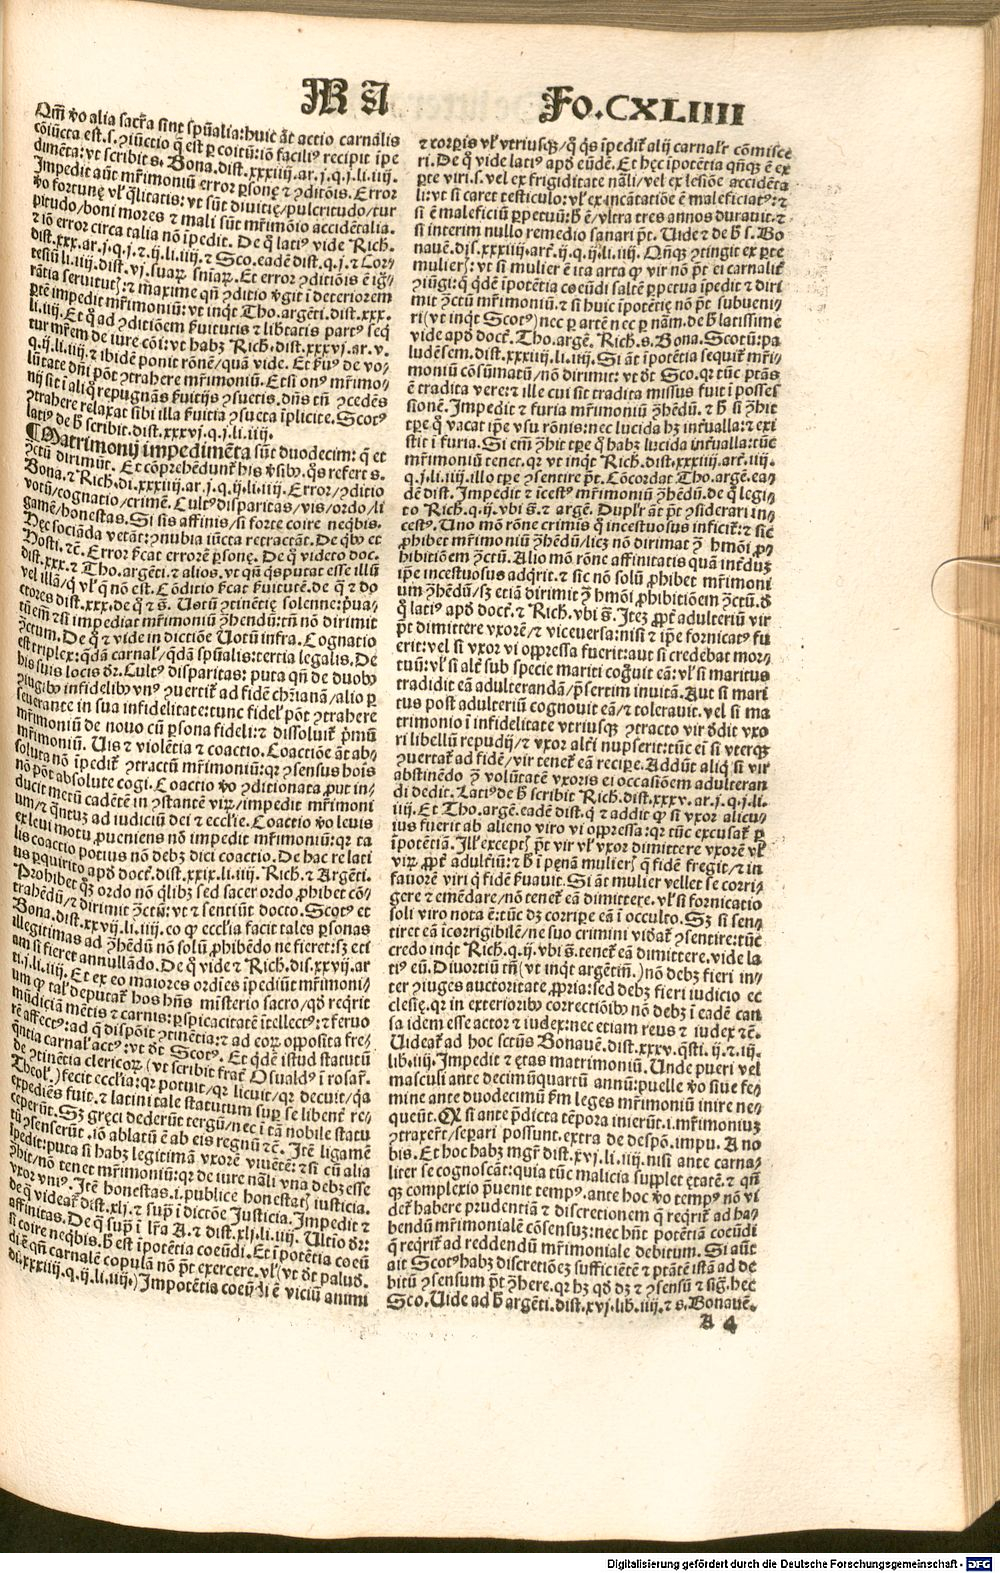 M A
Fo.CXLIIII
Qm̄ ꝟo alia sacr̃a sint spūalia: huic āt actio carnalis
cōiūcta est.s.ꝯiūctio q̄ est ꝑ coitū: iō faciliꝰ recipit ipe
dimēta: vt scribit s. Bona. dist.xxxiiij.ar.j.q.j.li.iiij.
Impedit aūt mr̄imoniū error ꝑsonę ⁊ ꝯditōis. Error
ꝟo fortunę vl̓ q̄litatis: vt sūt diuitię/pulcritudo/tur
pitudo/boni mores ⁊ mali sūt mr̄imōio accidētalia.
⁊ iō error circa talia nō īpedit. De q̊ latiꝰ vide Rich.
dist.xxx.ar.j.q.j.⁊.ij.li.iiij.⁊ Sco. eadē dist.q.j.⁊ Lor-
rātia seruitutis: ⁊ maxime qn̄ ꝯditio vgit ī deteriorem
ꝑtē impedit mr̄imoniū: vt inq̇t Tho. argēti. dist.xxx.
li.iiij. Et q̊ ad ꝯditiōem ẜuitutis ⁊ libtatis partꝰ seq̇
tur mr̄em de iure cōi: vt habꝫ Rich. dist.xxxvj.ar.v.
q.ij.li.iiij.⁊ ibidē ponit rōnē/quā vide. Et ẜuꝰ de vo-
lūtate dn̄i pōt ꝯtrahere mr̄imoniū. Etsi onꝰ mr̄imo-
nij sit ī aliq̊ repugnās ẜuitijs ꝯsuetis. dn̄s tn̄ ꝯcedēs
ꝯtrahere relaxat sibi illa ẜuitia ꝯsueta īplicite. Scotꝰ
latiꝰ de h̄ scribit. dist.xxxvj.q.j.li.iiij.
¶Matrimonij impedimēta sūt duodecim: q̄ et
ꝯctū dirimūt. Et cōprehēdunt̄ his ꝟsibꝰ. q̊s refert s.
Bona.⁊ Rich. di.xxxiiij.ar.j.q.ij.li.iiij. Error/ꝯditio
votū/cognatio/crimē. Cultꝰ disparitas/vis/ordo/li
gamē/honestas. Si sis affinis/si forte coire neq̇bis.
Hec sociāda vetāt: ꝯnubia iūcta retractāt. De q̇bꝰ et
Hosti.⁊c. Error ẜcat errorē ꝑsonę. De q̊ videto doc.
dist.xxx.⁊ Tho. argēti.⁊ alios. vt qn̄ q̇s putat esse illū
vel illā/q̇ vl̓ q̄ nō est. Cōditio ẜcat ẜuitutē. de q̊ ⁊ do
ctores dist.xxx. de q̊ ⁊ s̄. Uotū ꝯtinētię solenne: p̄ua-
tū em̄ ⁊si impediat mr̄imoniū ꝯhendū: tn̄ nō dirimit
ꝯctum. De q̊ ⁊ vide in dictiōe Uotū infra. Cognatio
est triplex: q̄dā carnal̓/q̄dā spūalis: tertia legalis. De
his suis locis dr̄. Cultꝰ disparitas: puta qn̄ de duobꝰ
ꝯiugibꝰ infidelibꝰ vnꝰ ꝯuertit̄ ad fidē chr̄ianā/alio ꝑ
seuerante in sua infidelitate: tunc fidel̓ pōt ꝯtrahere
mr̄imoniū de nouo cū ꝑsona fideli: ⁊ dissoluit̄ p̄mū
mr̄imoniū. Uis ⁊ violētia ⁊ coactio. Coactiōe āt ab-
soluta nō īpedit̄ ꝯtractū mr̄imoniū: qꝛ ꝯsensus hoīs
nō pōt absolute cogi. Coactio ꝟo ꝯditionata ꝓut in-
ducit metū cadētē in ꝯstantē virꝝ/impedit mr̄imoni
um/⁊ q̄ntuꝫ ad iudiciū dei ⁊ eccl̓ie. Coactio ꝟo leuis
ex leui motu ꝓueniens nō impedit mr̄imoniū: qꝛ ta
lis coactio potius nō debꝫ dici coactio. De hac re lati
us ꝑquirito apd̓ doct. dist.xxix.li.iiij. Rich.⁊ Argēti.
Prohibet q̊ꝫ ordo nō q̄libꝫ sed sacer ordo ꝓhibet cō-
trahēdū/⁊ dirimit ꝯctū: vt ⁊ sentiūt docto. Scotꝰ et
Bona. dist.xxvij.li.iiij. eo ꝙ eccl̓ia facit tales ꝑsonas
illegitimas ad ꝯhendū nō solū ꝓhibēdo ne fieret: sꝫ eti
am si fieret annullādo. De q̊ vide ⁊ Rich. dis.xxvij.ar
ti.j.li.iiij. Et ex eo maiores ordīes īpediūt mr̄imoni-
um ꝙ tal̓ deputat̄ hos hn̄s misterio sacro/qd̓ reqrit
mūdiciam mētis ⁊ carnis: ꝑspicacitatē ītellectꝰ: ⁊ feruo
rē affectꝰ: ad q̄ dispōit ꝯtinētia: ⁊ ad eoꝝ opposita fre-
q̄ntia carnal̓ actꝰ: vt dt̓ Scotꝰ. Et q̇dē istud statutū
de ꝯtinētia clericoꝝ (vt scribit frat̓ Osualdꝰ ī rosar̄.
Theol̓.) fecit eccl̓ia: qꝛ potuit/qꝛ licuit/qꝛ decuit/q̄a
expediēs fuit.⁊ latini tale statutum supꝫ se libent̓ re-
ceperūt. Sꝫ gręci dederūt tergū/nec ī tā nobile statu
tū ꝯsenserūt. iō ablatū ē ab eis regnū ⁊c. Itē ligamē
īpedit: puta si habꝫ legitimā vxorē viuētē: ⁊ si cū alia
ꝯhit/nō tenet mr̄imoniū: qꝛ de iure nāli vna debꝫ esse
vxor vniꝰ. Itē honestas.i. publice honestatis iusticia.
de q̊ videat̄ dist.xlj.⁊ supra̅ ī dictōe Justicia. Impedit ⁊
affinitas. De q̊ supra̅ ī lr̄a A.⁊ dist.xlj.li.iiij. Ultīo dr̄:
si coire neq̇bis. h̄ est īpotētia coeūdi. Et īpotētia coeū
di ē qn̄ carnalē copulā nō pōt exercere. vl̓ (vt dt̓ palud.
di.xxxiiij.q.ij.li.iiij.) Impotētia coeūdi ē viciū animi
⁊ corꝑis vl̓ vtriusqꝫ/q̊ q̇s īpedit̄ alij carnalr̄ cōmisce
ri. De q̊ vide latiꝰ apd̓ eūdē. Et hęc īpotētia qn̄qꝫ ē ex
ꝑte viri.s. vel ex frigiditate nāli/vel ex lesiōe accidēta
li: vt si caret testiculo: vl̓ ex incātatiōe ē maleficiatꝰ: ⁊
si ē maleficiū ꝑpetuū: h̄ ē/vltra tres annos durauit.⁊
si interim nullo remedio sanari p̄t. Uide ⁊ de h̄ s. Bo
nauē. dis.xxxiiij.art̄.ij.q.ij.li.iiij. Qn̄qꝫ ꝯtingit ex ꝑte
mulieris: vt si mulier ē ita arta ꝙ vir nō p̄t ei carnalit̄
ꝯiūgi: q̄ q̇dē īpotētia coeūdi saltē ꝑpetua īpedit ⁊ diri
mit ꝯctū mr̄imoniū.⁊ si huic īpotētię nō p̄t subueni-
ri (vt inq̇t Scotꝰ) nec ꝑ artē nec ꝑ nām. de h̄ latissime
vide apd̓ doct̄. Tho. argē. Rich. s. Bona. Scotū: pa
ludēsem. dist.xxxiiij.li.iiij. Si āt īpotētia sequit̄ mr̄i-
moniū cōsūmatū/nō dirimit: vt dt̓ Sco. qꝛ tūc ptās
ē tradita vere: ⁊ ille cui sit tradita missus fuit ī posses
sionē. Impedit ⁊ furia mr̄imoniū ꝯhēdū.⁊ h̄ si ꝯhit
tꝑe q̊ vacat ipe vsu rōnis: nec lucida hꝫ int̄ualla: ⁊ exi
stit ī furia. Si em̄ ꝯhit tꝑe q̊ habꝫ lucida int̄ualla: tūc
mr̄imoniū tenet. qꝛ vt inq̇t Rich. dist.xxxiiij.art̄.iiij.
q.j.li.iiij. illo tꝑe ꝯsentire p̄t. Cōcordat Tho. argē. ea-
dē dist. Impedit ⁊ īcestꝰ mr̄imoniū ꝯhēdū. de q̊ legi-
to Rich. q.ij. vbi s̄.⁊ argē. Duplr̄ āt p̄t ꝯsiderari in-
cestꝰ. Uno mō rōne crimis q̊ incestuosus inficit̄: ⁊ sic
ꝓhibet mr̄imoniū ꝯhēdū/licꝫ nō dirimat ꝯ hmōi ꝓ-
hibitiōem ꝯctū. Alio mō rōne affinitatis quā int̄duꝫ
ipe incestuosus adq̇rit.⁊ sic nō solū ꝓhibet mr̄imoni
um ꝯhēdū/sꝫ etiā dirimit ꝯ hmōi ꝓhibitiōem ꝯctū. d̓
q̊ latiꝰ apd̓ doct̄.⁊ Rich. vbi s̄. Iteꝫ ꝓpt̄ adulteriū vir
p̄t dimittere vxorē/⁊ viceversa: nisi ⁊ ipe fornicatꝰ fu
erit: vel si vxor vi oppressa fuerit: aut si credebat mor-
tuū: vl̓ si alt̄ sub specie mariti cog̅uit eā: vl̓ si maritus
tradidit eā adulterandā/p̄sertim inuitā. Aut si mari
tus post adulteriū cognouit eā/⁊ tolerauit. vel si ma
trimonio ī infidelitate vtriusqꝫ ꝯtracto vir d̓dit vxo
ri libellū repudij/⁊ vxor alt̄i nupserit: tūc ei si vterqꝫ
ꝯuertat̄ ad fidē/vir tenet̄ eā recipe. Addūt aliq̇ si vir
abstinēdo ꝯ volūtatē vxoris ei occasiōem adulteran
di dedit. Latiꝰ de h̄ scribit Rich. dist.xxxv.ar.j.q.j.li.
iiij. Et Tho. argē. eadē dist.q̊ ⁊ addit ꝙ si vxor alicu-
ius fuerit ab alieno viro vi oppressa: qꝛ tūc excusat̄ ꝑ
īpotētiā. Ill̓ exceptis p̄t vir vl̓ vxor dimittere vxorē vl̓
virꝝ ꝓpt̄ adult̄iū: ⁊ h̄ ī pęnā mulieris q̄ fidē fregit/⁊ in
fauorē viri q̇ fidē ẜuauit. Si āt mulier vellet se corri-
gere ⁊ emēdare/nō tenet̄ eā dimittere. vl̓ si fornicatio
soli viro nota ē: tūc dꝫ corripe eā ī occulto. Sꝫ si sen-
tiret eā īcorrigibilē/ne suo crimini vid̓at̄ ꝯsentire: tūc
credo inq̇t Rich. q.ij. vbi s̄. tenet̄ eā dimittere. vide la
tiꝰ eū. Diuortiū tn̄ (vt inq̇t argētin̄.) nō debꝫ fieri in-
ter ꝯiuges auctoritate ꝓpria: sed debꝫ fieri iudicio ec
clesię. qꝛ in exterioribꝰ correctiōibꝰ nō debꝫ ī eadē cau
sa idem esse actor ⁊ iudex: nec etiam reus ⁊ iudex ⁊c.
Uideat̄ ad hoc sctūs Bonauē. dist.xxxv. q̄sti.ij.⁊.iij.
lib.iiij. Impedit ⁊ ętas matrimoniū. Unde pueri vel
masculi ante decimūquartū annū: puelle ꝟo siue fe-
mine ante duodecimū ẜm leges mr̄imoniū inire ne-
queūt. Qꝫ si ante p̄dicta tēpora inierūt.i. mr̄imoniuꝫ
ꝯtraxer̄t/separi possunt. extra de despō. impu. A no
bis. Et hoc habꝫ mgr̄. dist.xvj.li.iiij. nisi ante carna-
liter se cognoscāt: quia tūc malicia supplet ętatē.⁊ qn̄
q̊ꝫ complexio p̄uenit tempꝰ. ante hoc ꝟo tempꝰ nō vi
det̄ habere prudentiā ⁊ discretionem q̄ reqrit̄ ad ha-
bendū mr̄imonialē cōsensuꝫ: nec hn̄t potētiā coeūdi
q̄ reqrit̄ ad reddendū mr̄imoniale debitum. Si aūt
ait Scotꝰ habꝫ discretiōeꝫ sufficiētē ⁊ ptātē istā ad de
bitū ꝯsensum p̄t ꝯhere. qꝛ hꝫ qd̓ dꝫ ⁊ ꝯsensū ⁊ sig̅. hec
Sco. Uide ad h̄ argēti. dist.xvj.lib.iiij.⁊ s. Bonauē.
A 4
Digitalisierung gefördert durch die Deutsche Forschungsgemeinschaft - DFG